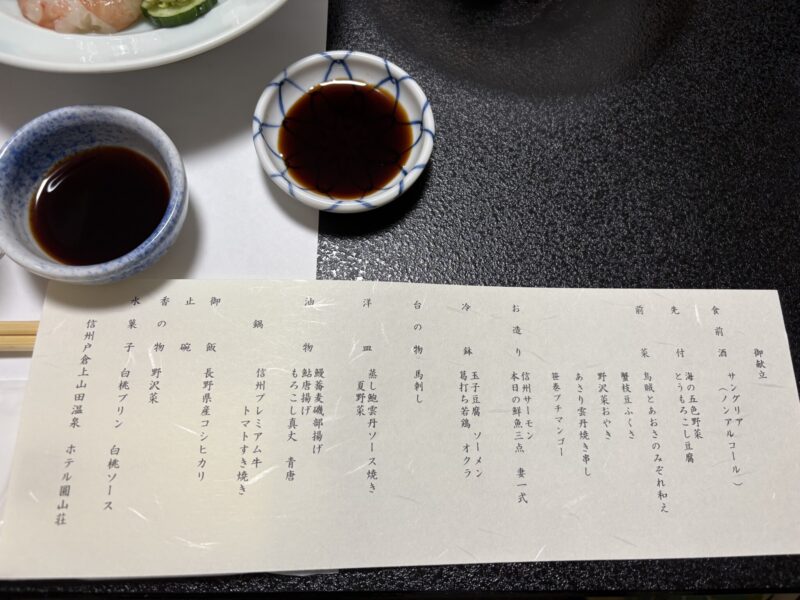 御献立
食前酒 サングリア
(ノンアルコール)
先付 海の五色野菜
とうもろこし豆腐
前菜 烏賊とあおさのみぞれ和え
蟹枝豆ふくさ
野沢菜おやき
あさり雲丹焼き串し
笹巻プチマンゴー
お造り 信州サーモン
本日の鮮魚三点 妻一式
冷鉢 玉子豆腐 ソーメン
葛打ち若鶏 オクラ
台の物 馬刺し
洋皿 蒸し鮑雲丹ソース焼き
夏野菜
油物 鰻蕎麦磯部揚げ
鮎唐揚げ
もろこし真丈 青唐
鍋 信州プレミアム牛
トマトすき焼き
御飯 長野県産コシヒカリ
止碗
香の物 野沢菜
水菓子 白桃プリン 白桃ソース
信州戸倉上山田温泉 ホテル圓山荘